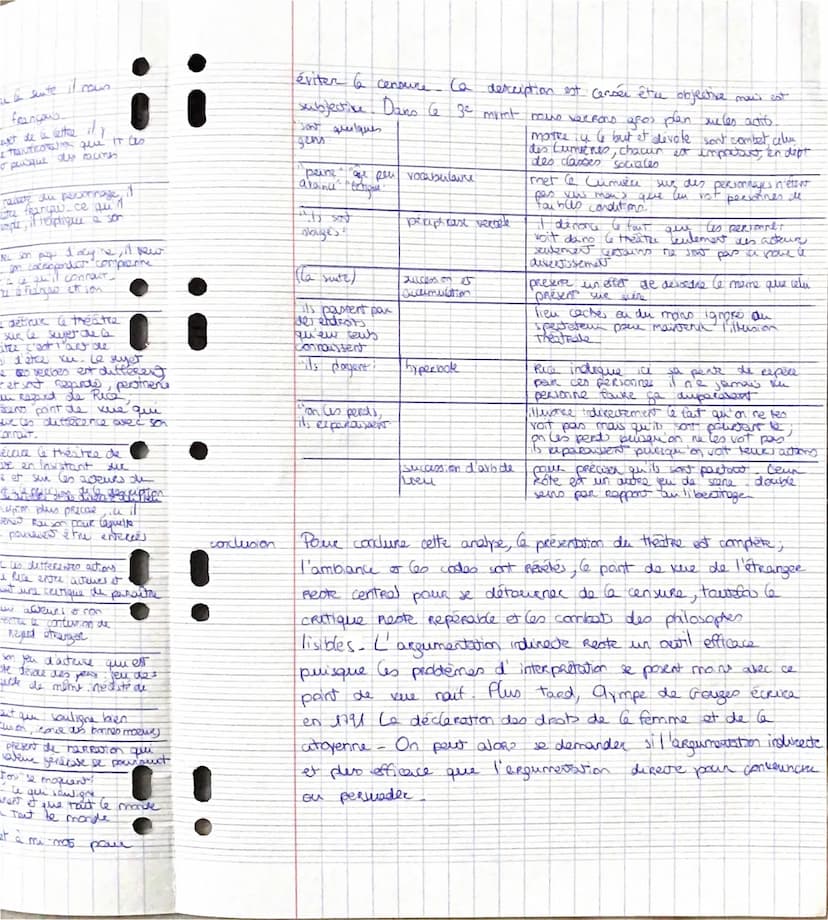 é la suite il nous
français.
sujet de la lettre il y
puisque des
du personnage, il
être français ce qu'il
il réplique à son
son pays d'origine, il peut
son correspondant comprenne
à ce qu'il connait.
à français et son
détruire le théâtre
sur le sujet de la
c'est l'art de
d'être vu. Le sujet
verbes est différent
et sont regardés, pertinent
regard de Rica,
point de vue qui
les différence avec son
décrire le théâtre de
en insistant sur
et sur les acteurs du
plus précise, il
raison pour laquelle
pouvaient être enterrés
les différentes actions
Rica entre acteurs et
une critique du paraître
acteurs o non
la confusion de
regard étranger
son jeu d'acteur qui est
des pers. jeu des
de même nécessité de
que souligne bien
des bonnes moeurs
présent de narration qui
générale se poursuit
se moquant
ce que souligne
et que tout le monde
tout le monde
et à mi-mots pour
éviter la censure. La description est censée être objective mais est
subjective. Dans le 3e mvmt nous verrons gros plan sur les actis.
"sont quelques
gens
motre ici le but et dévote sont combat celui
des Lumières, chacun est important, en dépit
des classes sociales
"peine" "que peu
d'haine" "fatigue"
vocabulaire
met la Lumière sur des personnages n'étant
pas vus mais que les vot personnes de
faibles conditions.
"ils sont
obligés"
périphrase verbale
il dénonce le fait que les personnes
voit dans le théâtre seulement des acteurs
seulement certains ne sont pas ici pour le
divertissement
(la suite)
succession et
accumulation
présente un état de désordre le même que celui
présent sur scène
ils passent par
des endroits
qu'eux seuls
connaissent
lieu cachés ou du moins ignoré du
spectateur pour maintenir l'illusion
théâtrale.
"ils plogent"
hyperbole
Rica indique ici sa perte de repère
pour ces personnes il n'a jamais vu
personne faire ça auparavant
"on les perds,
ils reparaissent"
illustre indirectement le fait qu'on ne les
voit pas mais qu'ils sont pourtant là,
on les perds puisqu'on ne les voit pas,
ils reparaissent puisqu'on voit leurs actions
succession d'adv de
lieu
pour préciser qu'ils sont partout. Leur
rôte est un autre jeu de scène. double
sens par rapport au libertinage
conclusion
Pour conclure cette analyse, la présentation du théâtre est complète,
l'ambiance et les codes sont révélés, le point de vue de l'étranger
reste central pour se détourner de la censure, toutefois la
critique reste repérable et les combats des philosophes
lisibles. L'argumentation indirecte reste un outil efficace
puisque les problèmes d'interprétation se posent moins avec ce
point de vue naïf. Plus tard, Olympe de Gouges écrira
en 1791 La déclaration des droits de la femme et de la
citoyenne. On peut alors se demander si l'argumentation indirecte
et plus efficace que l'argumentation directe pour convaincre
ou persuader.